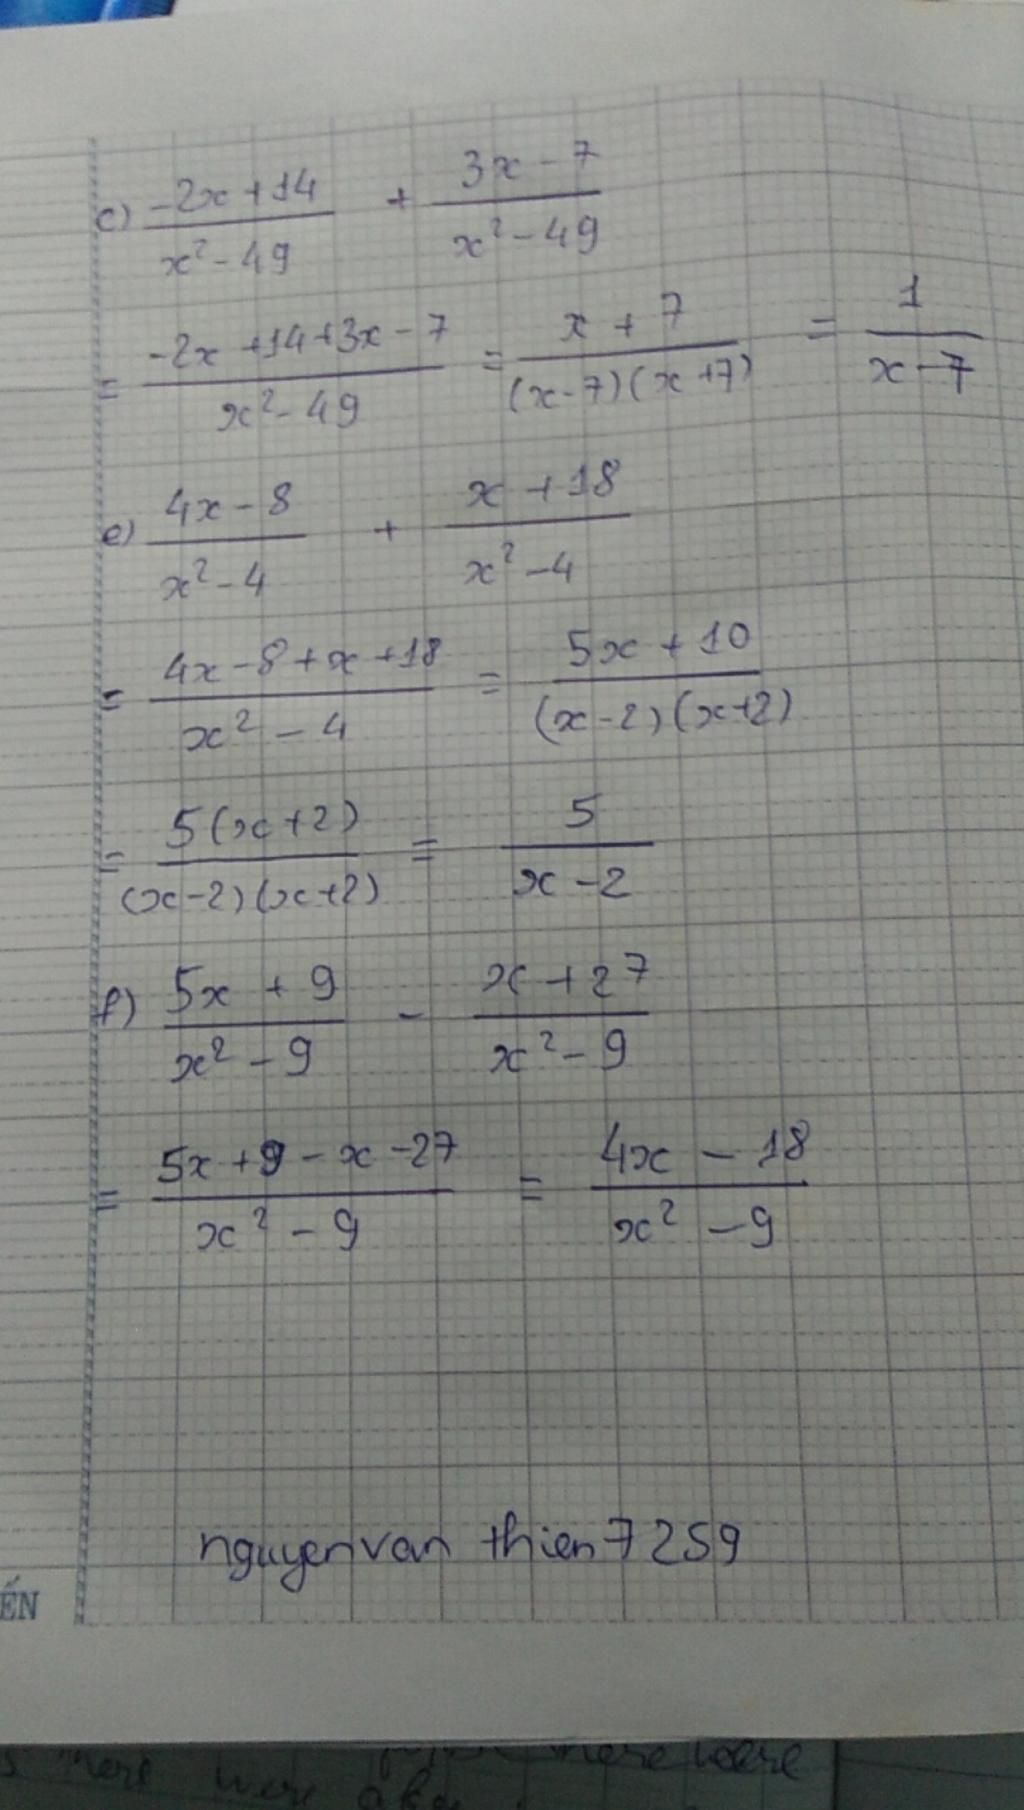 c) (-2x+14)/(x²-49) + (3x-7)/(x²-49)
= (-2x+14+3x-7)/(x²-49) = (x+7)/((x-7)(x+7)) = 1/(x-7)
e) (4x-8)/(x²-4) + (x+18)/(x²-4)
= (4x-8+x+18)/(x²-4) = (5x+10)/((x-2)(x+2))
= (5(x+2))/((x-2)(x+2)) = 5/(x-2)
f) (5x+9)/(x²-9) - (x+27)/(x²-9)
= (5x+9-x-27)/(x²-9) = (4x-18)/(x²-9)
nguyenvan thien7259
ẾN
here were